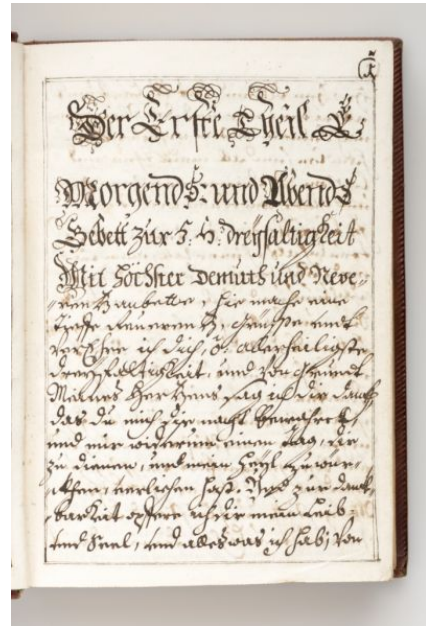 1
Der Erste Theil
Morgends: und Abends
Gebett zur H: H: dreyfaltigkeit
Mit Höchster Demuth und Reve=
renz anbette,
tieffe Reverenz, grüesse undt
verEhre ich dich, O allerheiligste
dreyfaltigkeit, und von grundt
Meines HerZens sag ich dir danck
das du mich die nacht bewahret,
und mir widerumb einen tag, dir
zu dienen, und mein heyl zu wür=
ckhen, verliehen hast: Und zur danck=
barkeit opfere ich dir mein Leib
und Seel, und alles was ich hab, von